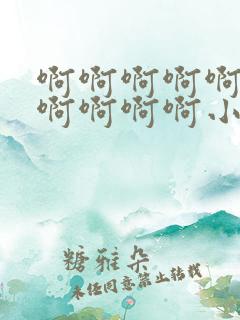 啊啊啊啊啊
啊啊啊啊小
糖雅朵
未经同意禁止转载